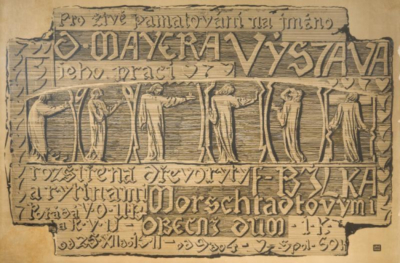 Pro živé pamatování na jméno
D-MAYERA VÝSTAVA
jeho prací
rozšířená dřevoryty F-BÍLKA
a rytinami Morschtadtovými
Pořádá V-O-
a K-V-U- OBECNÍ DŮM -1-K-
od 25 XII do 1-II- od 9 do 4- V-